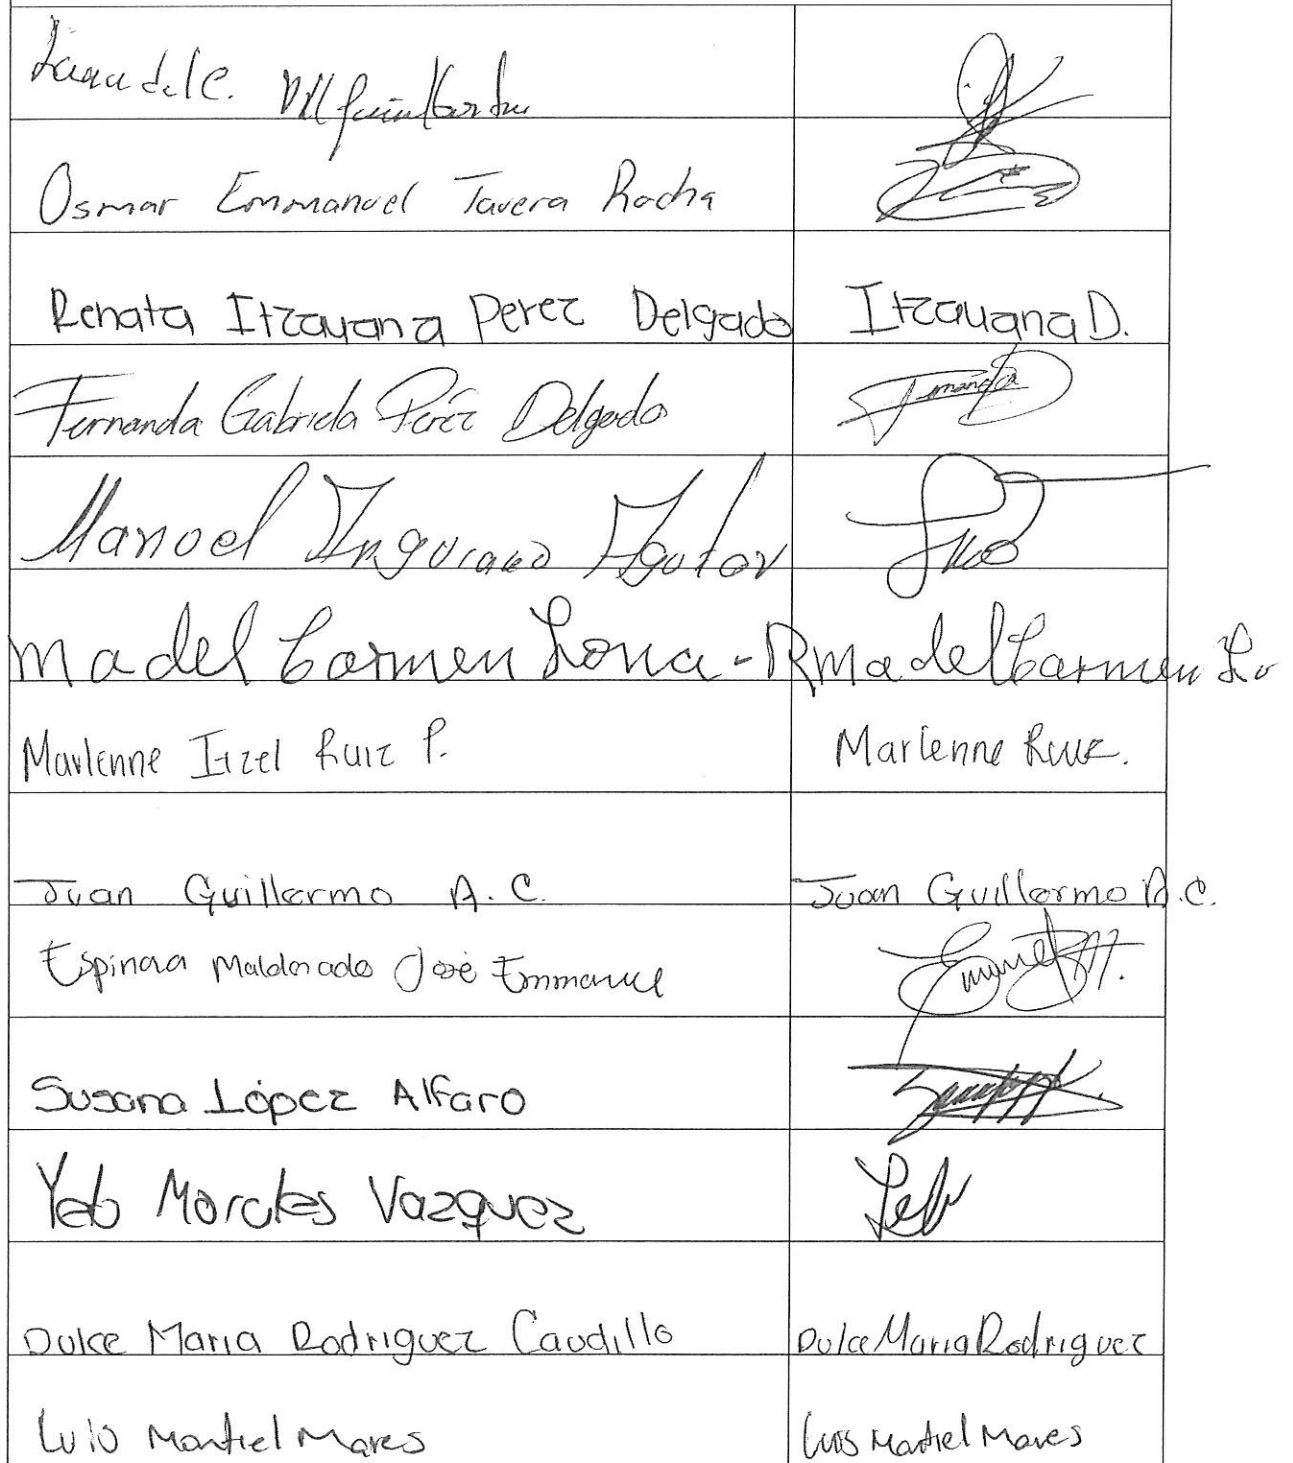 del C.
Osmar Emmanuel Tavera Rocha
Renata Itzayana Perez Delgado Itzayana D.
Fernanda Gabriela Peréz Delgado
Manoel Inguiano Aguilar
Ma del Carmen Lona - R Ma del Carmen Lo
Marlenne Itzel Ruiz P. Marlenne Ruiz.
Juan Guillermo A. C. Juan Guillermo A.C.
Espinoza Maldonado José Emmanuel Emanuel M.
Susana López Alfaro
Yeb Morales Vazquez Yeb
Dulce Maria Rodriguez Caudillo Dulce Maria Rodriguez
Luis Montiel Mares Luis Montiel Mares